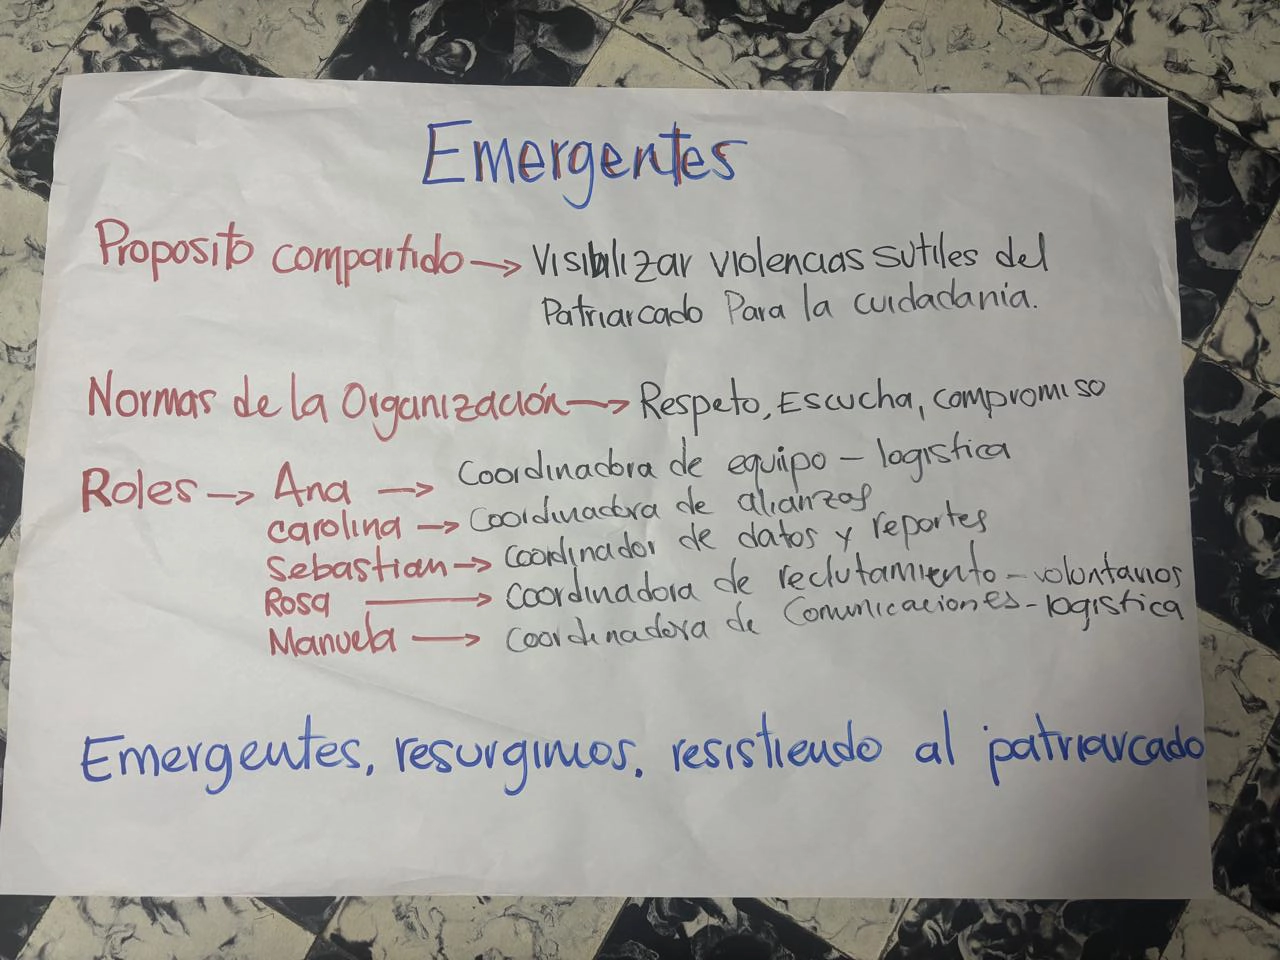 Emergentes
Proposito compartido → Visibilizar violencias sutiles del
Patriarcado Para la cuidadania.
Normas de la Organización → Respeto, Escucha, compromiso
Roles → Ana → Coordinadora de equipo - logistica
carolina → Coordinadora de alianzas
Sebastian → coordinador de datos y reportes
Rosa → coordinadora de reclutamiento - voluntarios
Manuela → coordinadora de Comunicaciones - logistica
Emergentes, resurgimos, resistiendo al patriarcado